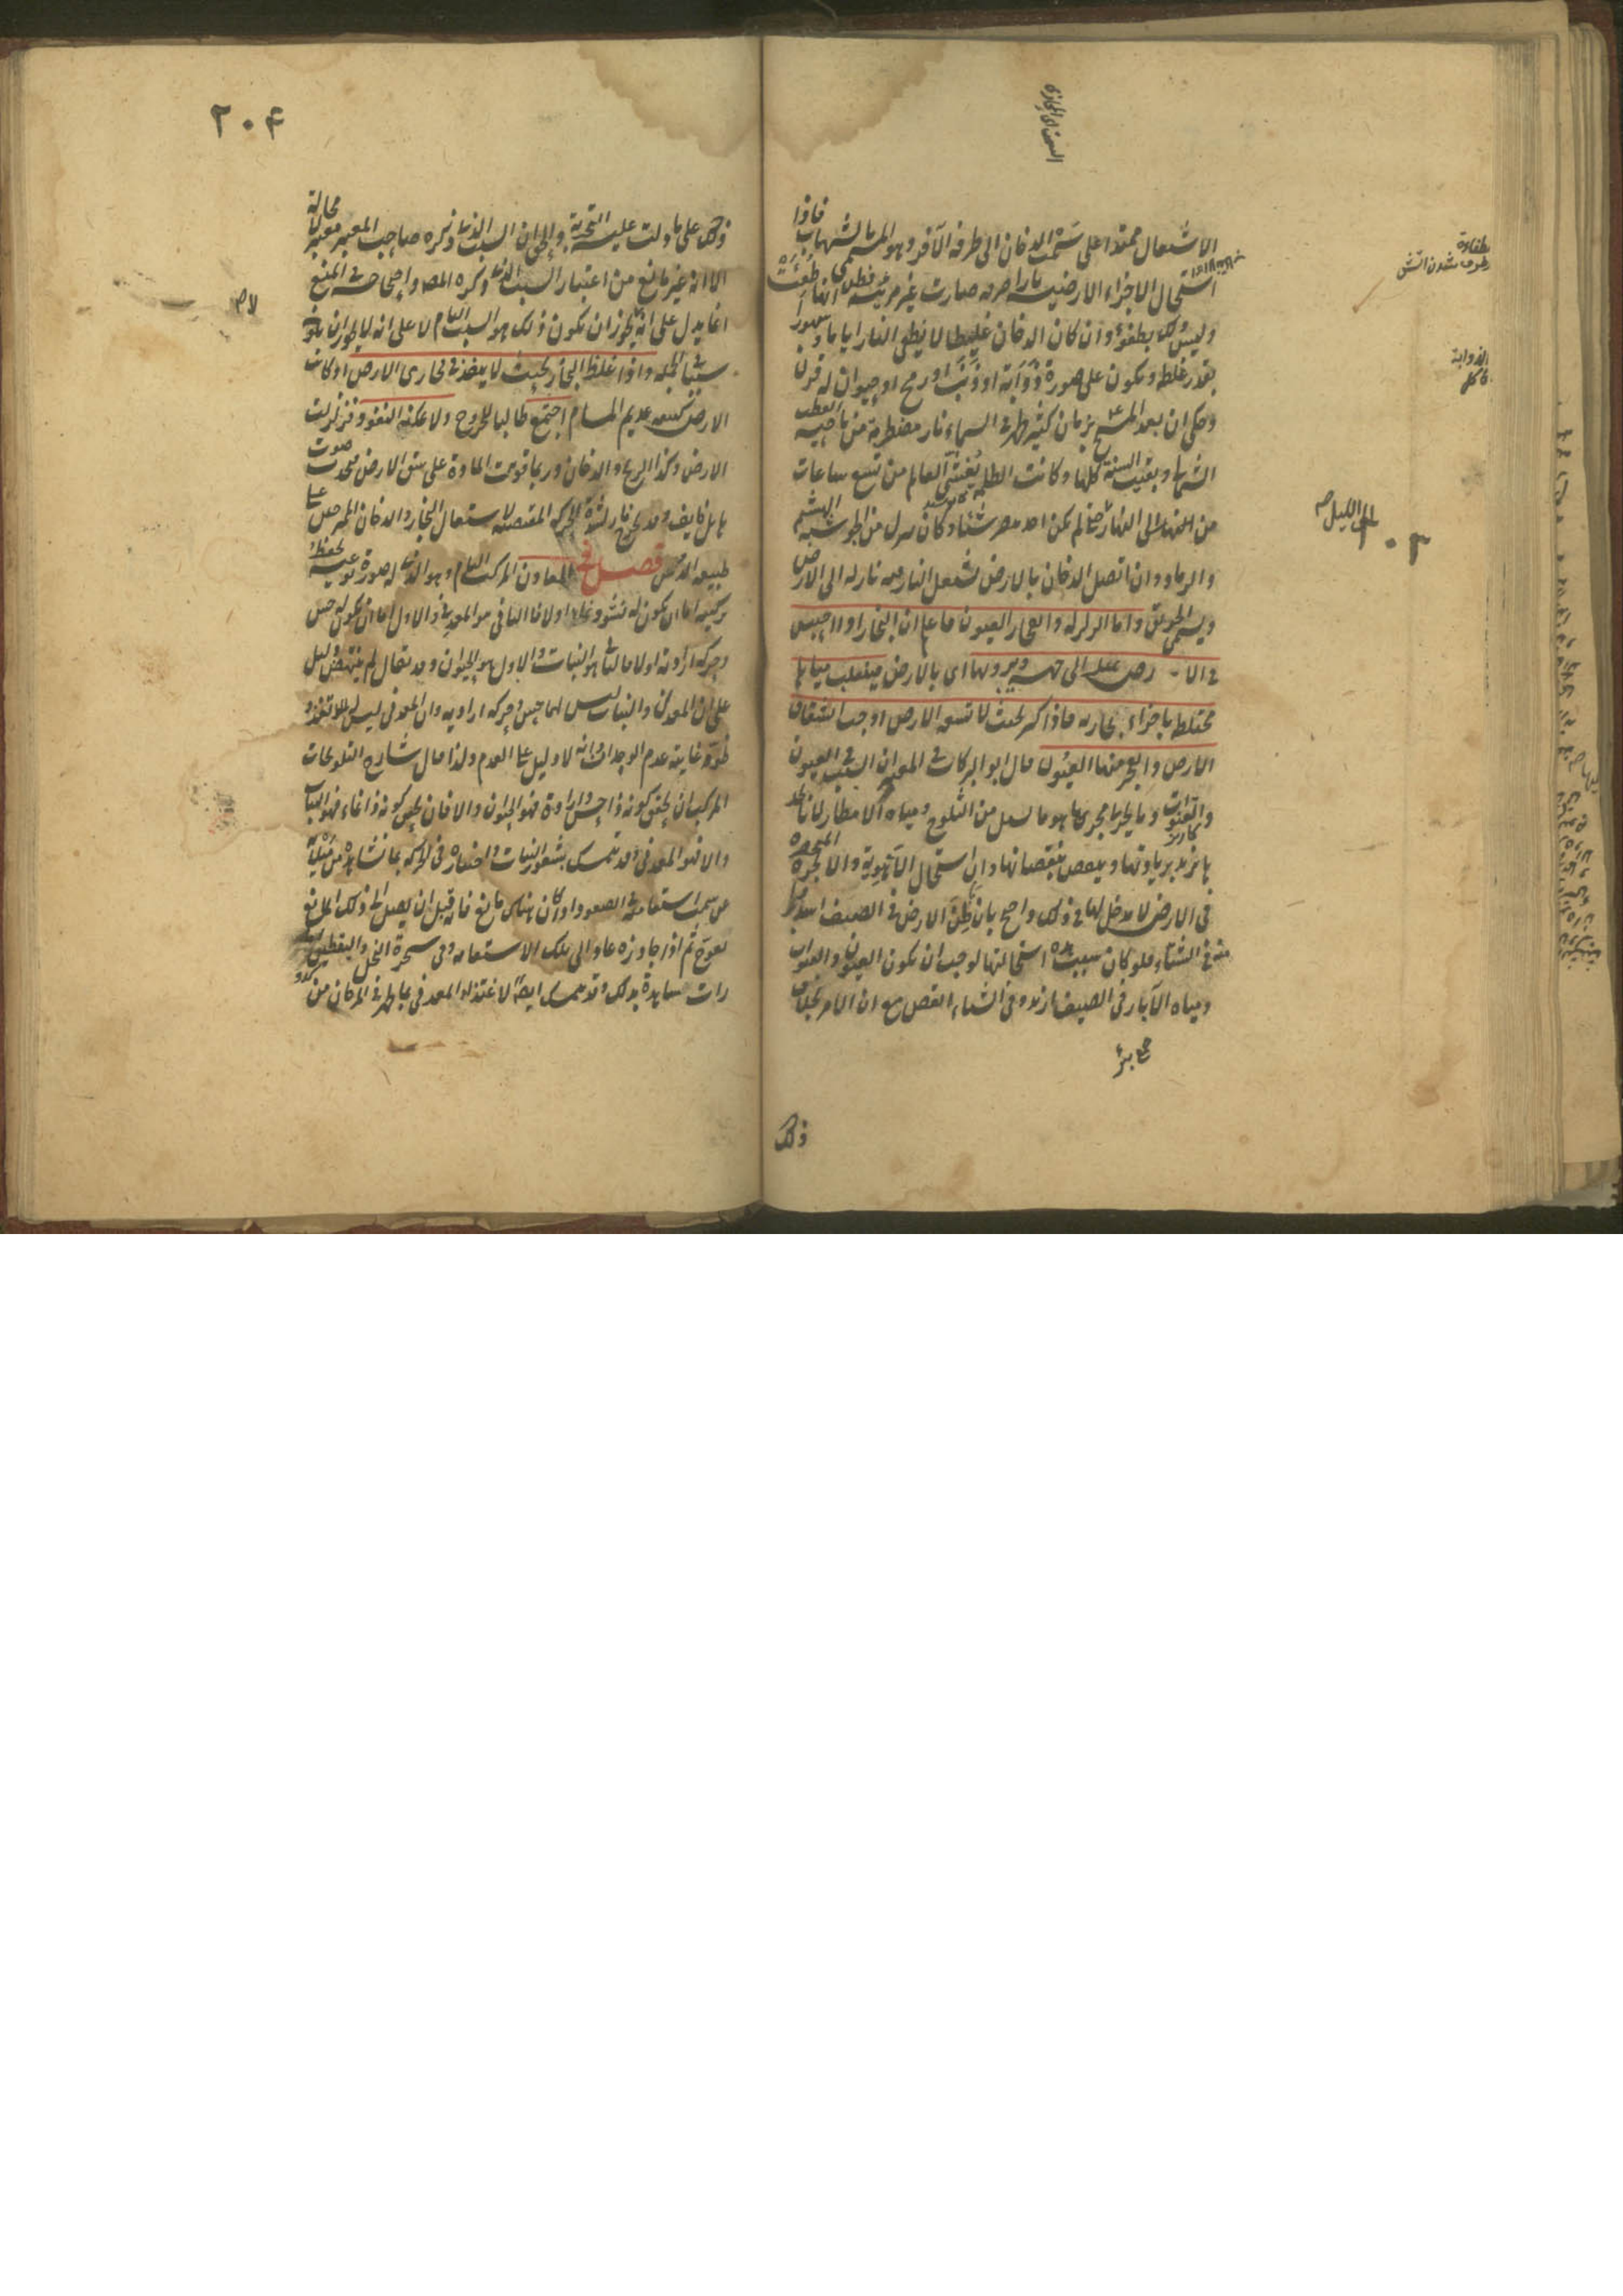 الاشتعال ممتدا على سمت الدخان الى طرفه الآخر وهو المسمى بالشهاب فاذا
استحال الاجزاء الارضية نارا صرفة صارت غير مرئية فظن انها طفئت
وليس ذلك بطفؤ وان كان الدخان غليظا لا ينطفى النار اياما وشهورا
بقدر غلظه ويكون على صورة ذؤابة او ذنب او رمح او حيوان له قرن
وحكى ان بعد المسيح بزمان كثير ظهر فى السماء نار مضطربة من ناحية القطب
الشمالى وبقيت السنة كلها وكانت الظلمة تغشى العالم من تسع ساعات
من النهار الى الليل حتى لم يكن احد يبصر شيئا وكان ينزل من الجو شبه الهشيم
والرماد وان اتصل الدخان بالارض يشتعل النار فيه نازلة الى الارض
ويسمى الحريق واما الزلزلة وانفجار العيون فاعلم ان البخار اذا احتبس
فى الارض يميل الى جهة ويبرد بها اى بالارض فينقلب مياها
مختلطة باجزاء بخارية فاذا كثر بحيث لا تسعه الارض اوجب انشقاق
الارض وانفجر منها العيون قال ابو البركات فى المعتبر ان السبب فى العيون
والقنوات وما يجرى مجريها هو ما يسيل من الثلوج ومياه الامطار لانا نجدها
تزيد بزيادتها وينقص بنقصانها وان استحال الاهوية والابخرة المنحصرة
فى الارض لا مدخل لها فى ذلك واحتج بان باطن الارض فى الصيف اشد بردا
منه فى الشتاء فلو كان سبب هذه استحالتها لوجب ان يكون العيون والقنوات
ومياه الآبار فى الصيف ازيد وفى الشتاء انقص مع ان الامر بخلاف
جمع بئر
ذلك
الذوابة
كاكل
٢٠٣
٢٠۴
ذلك على ما دلت عليه التجربة والحق ان السبب الذى ذكره صاحب المعتبر معتبر لا محالة
الا انه غير مانع من اعتبار السبب الذى ذكره المص واحتجاجه فى المنع
انما يدل على انه لا يجوز ان يكون ذلك هو السبب التام لا على انه لا يجوز ان يكون
سببا فى الجملة واذا غلظ البخار بحيث لا ينفذ فى مجارى الارض او كانت
الارض كثيفة عديم المسام اجتمع طالبا للخروج ولا يمكنه النفوذ فزلزلت
الارض وكذا الريح والدخان وربما قويت المادة على شق الارض فيحدث صوت
هايل وقد يخرج نار لشدة الحركة المقتضية لاشتعال البخار والدخان الممتزجين على
طبيعة الدهن فصل فى المعادن المركب التام وهو الذى له صورة نوعية يحفظ
تركيبه اما ان يكون له نشو ونماء اولا فالثانى هو المعدنى والاول اما ان يكون له حس
وحركة ارادية اولا فالثانى هو النبات والاول هو الحيوان وقد يقال لم ينتهض دليل
على ان المعدن والنبات ليس لهما حس وحركة ارادية وان المعدنى ليس له تغذ و
نمو غايته عدم الوجدان وانه لا دليل على العدم ولذا قال شارح التلويحات
المركب ان تحقق كونه ذا حس وارادة فهو الحيوان والا فان تحقق كونه ذا نماء فهو النبات
والا فهو المعدنى وقد يتمسك بشعور النبات واختياره فى الحركة بما نشاهده من ميله
عن سمت استقامته فى الصعود اذا كان هناك مانع فانه قبل ان يصل الى ذلك المانع
يعوج ثم اذا جاوزه عاد الى تلك الاستقامة وفى شجرة النخل واليقطين
امارات شاهدة بذلك وقد يتمسك ايضا لاغتذاء المعدنى بما ظهر فى المرجان من